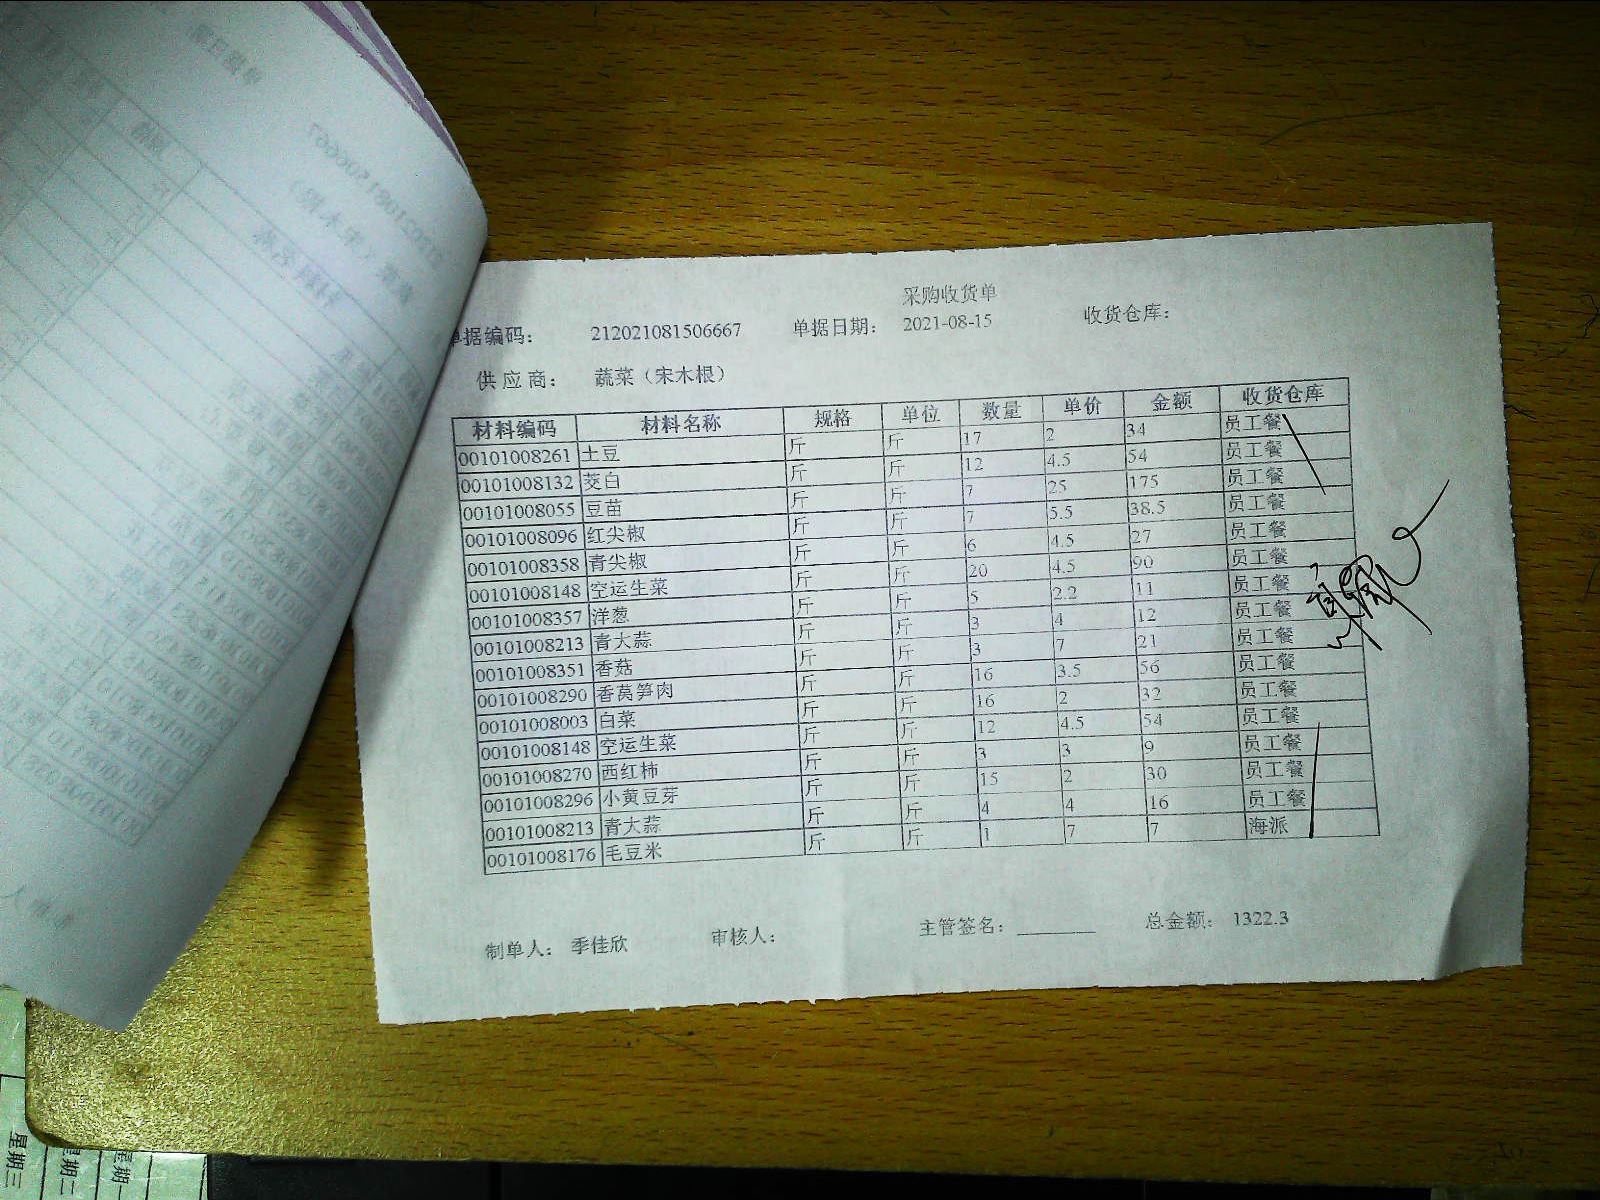 采购收货单
单据编码： 212021081506667 单据日期： 2021-08-15 收货仓库：
供应商： 蔬菜（宋木根）
材料编码 材料名称 规格 单位 数量 单价 金额 收货仓库
00101008261 土豆 斤 斤 17 2 34 员工餐
00101008132 茭白 斤 斤 12 4.5 54 员工餐
00101008055 豆苗 斤 斤 7 25 175 员工餐
00101008096 红尖椒 斤 斤 7 5.5 38.5 员工餐
00101008358 青尖椒 斤 斤 6 4.5 27 员工餐
00101008148 空运生菜 斤 斤 20 4.5 90 员工餐
00101008357 洋葱 斤 斤 5 2.2 11 员工餐
00101008213 青大蒜 斤 斤 3 4 12 员工餐
00101008351 香菇 斤 斤 3 7 21 员工餐
00101008290 香莴笋肉 斤 斤 16 3.5 56 员工餐
00101008003 白菜 斤 斤 16 2 32 员工餐
00101008148 空运生菜 斤 斤 12 4.5 54 员工餐
00101008270 西红柿 斤 斤 3 3 9 员工餐
00101008296 小黄豆芽 斤 斤 15 2 30 员工餐
00101008213 青大蒜 斤 斤 4 4 16 员工餐
00101008176 毛豆米 斤 斤 1 7 7 海派
制单人： 季佳欣 审核人： 主管签名： 总金额： 1322.3
星期三
星期二
星期一